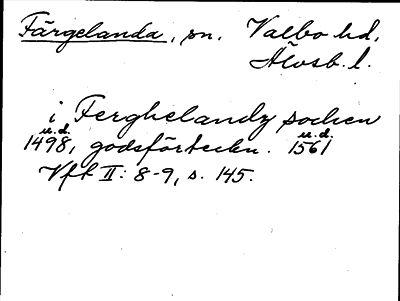 Färgelanda, sn. Valbo hd,
Älvsb. l.
i Ferghelandz sochen
u.d. u.d.
1498, godsförteckn. 1561
Vft II: 8-9, s. 145.